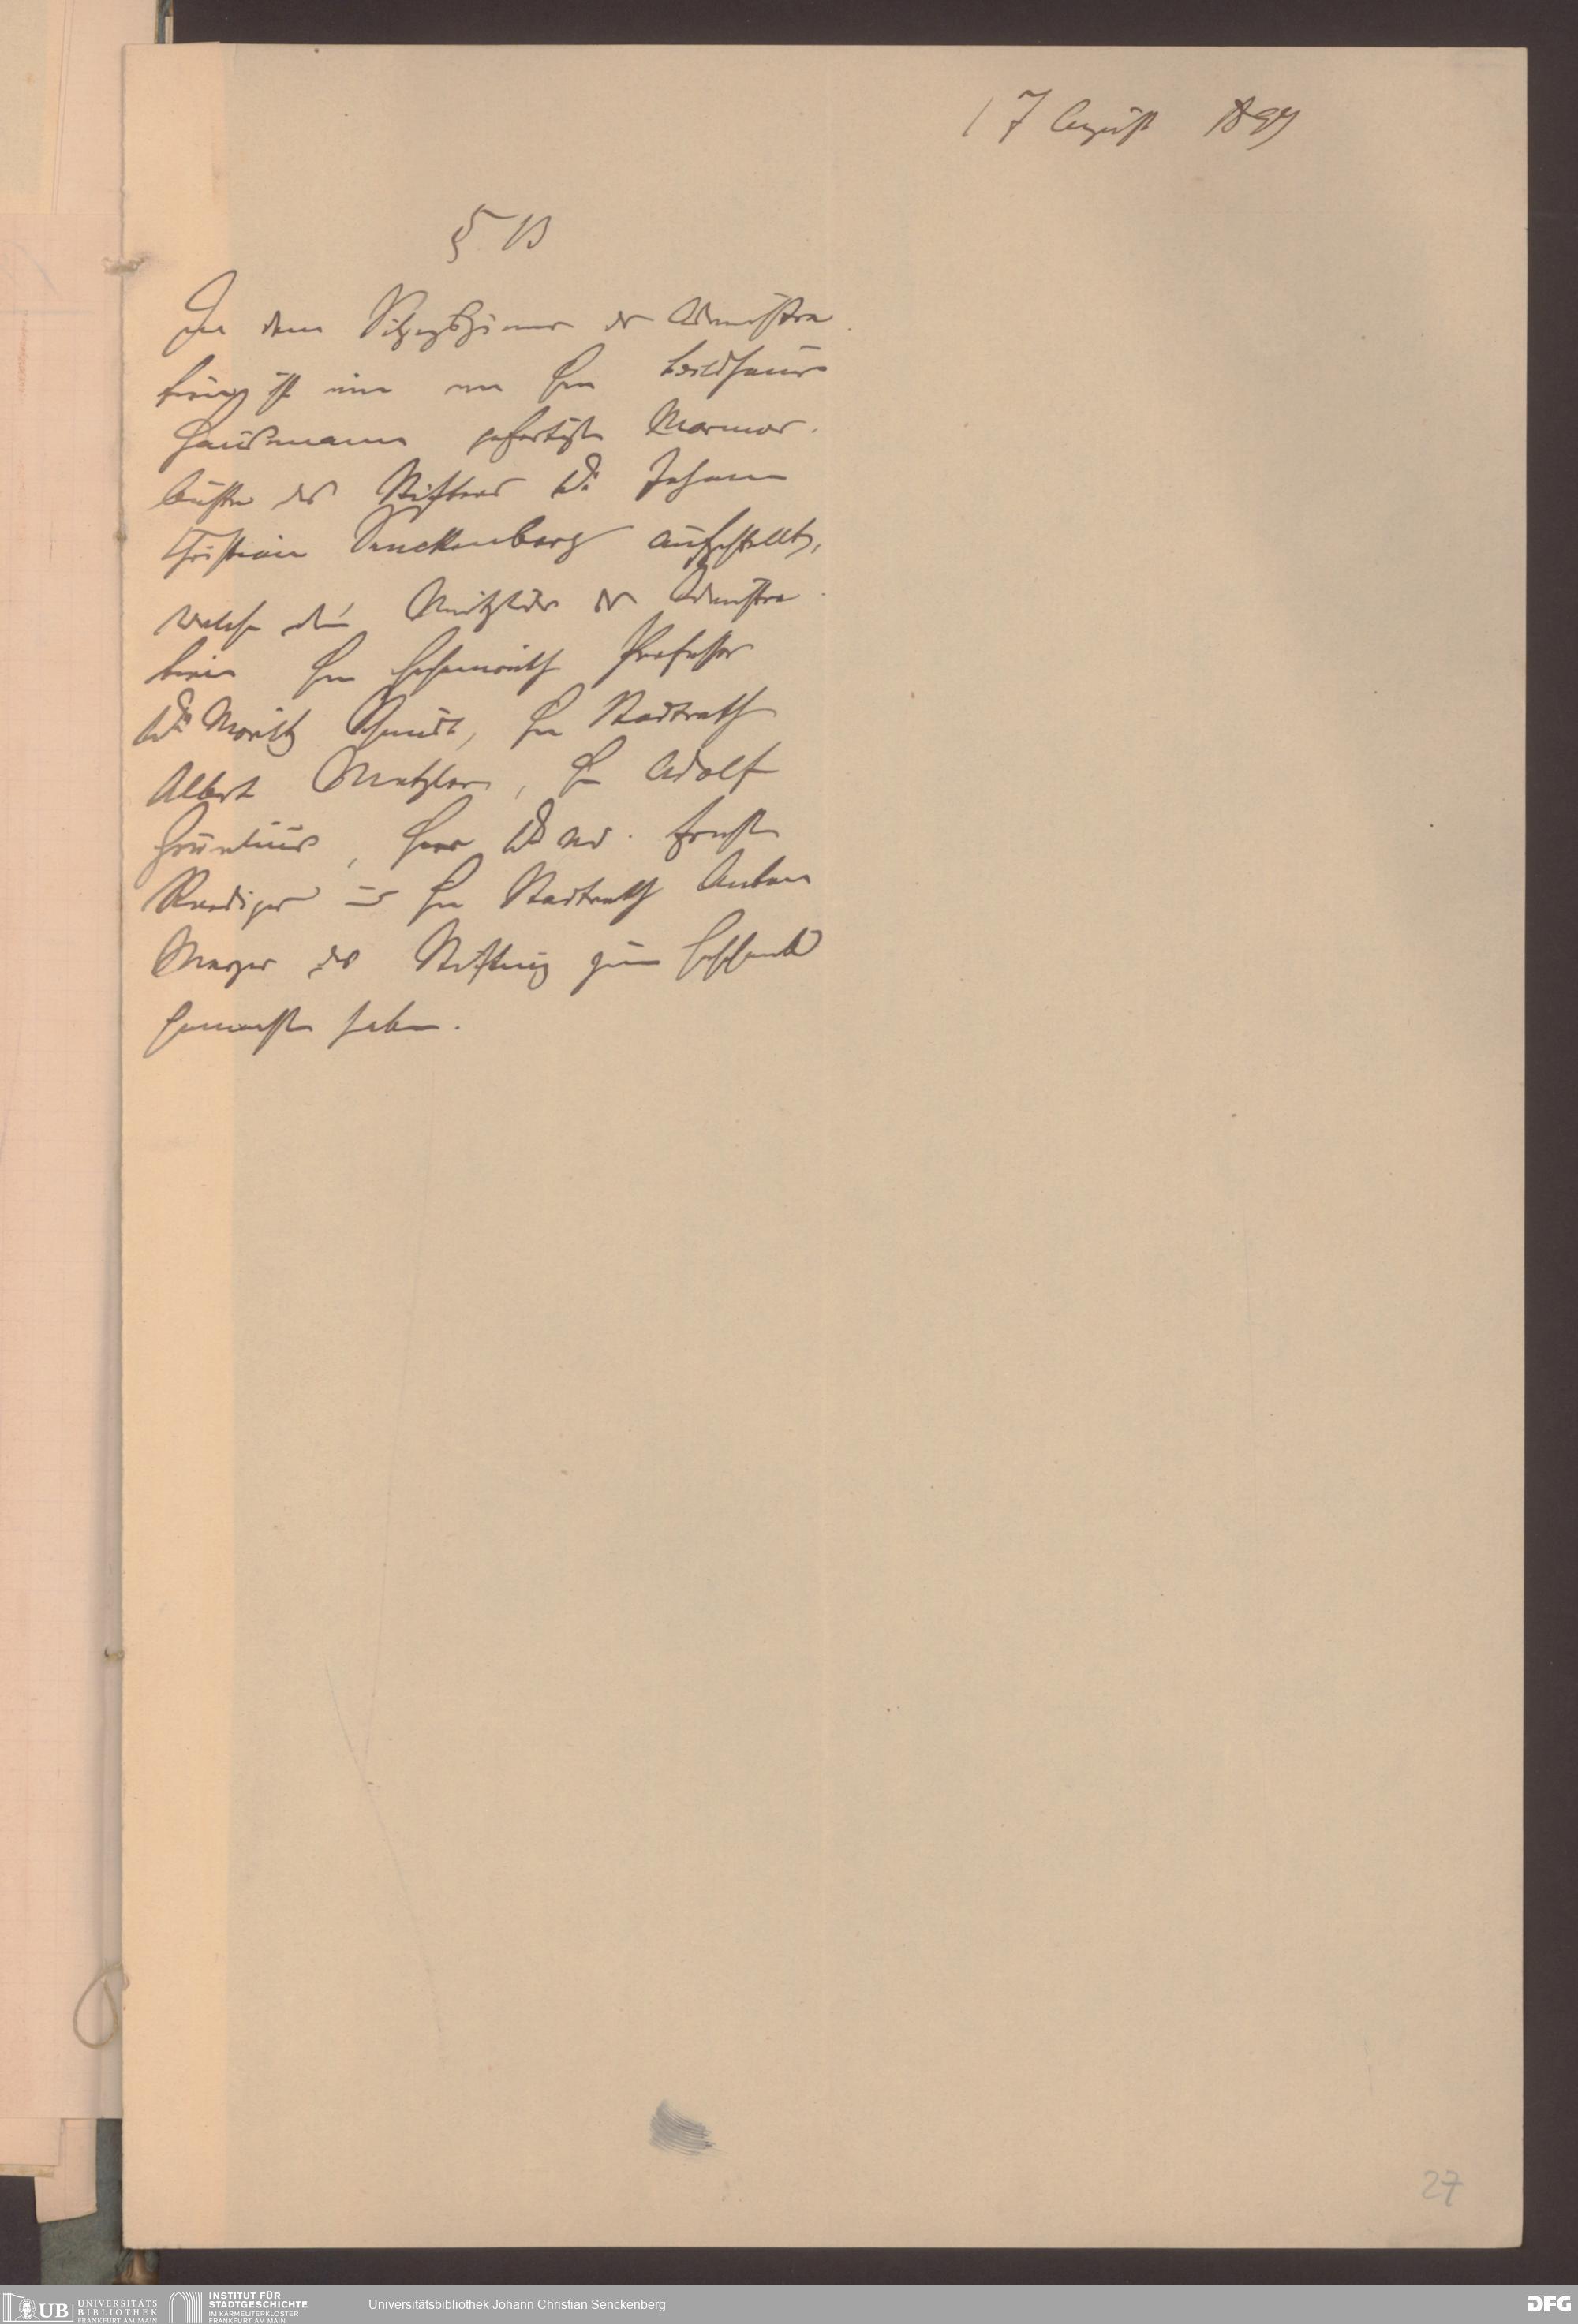 17 August 1897
§ 13
In dem Sitzungszimer der Administra
tion ist eine von Hrn Bildhauer
Hausmann gefertigte Marmor-
büste des Stifters Dr. Johann
Christian Senckenberg aufgestellt,
welche die Mitglieder der Adminstra
tion Hrn Geheimrath Professor
Dr. Moritz Schmidt, Hrn Stadtrath
Albert Metzler, Hr Adolf
Grunelius, Herr Dr. med. Ernst
Roediger und Hrn Stadtrath Anton
Meyer der Stiftung zum Geschenk
gemacht haben.
27
UB
UNIVERSITÄTS
BIBLIOTHEK
FRANKFURT AM MAIN
INSTITUT FÜR
STADTGESCHICHTE
IM KARMELITERKLOSTER
FRANKFURT AM MAIN
Universitätsbibliothek Johann Christian Senckenberg
DFG